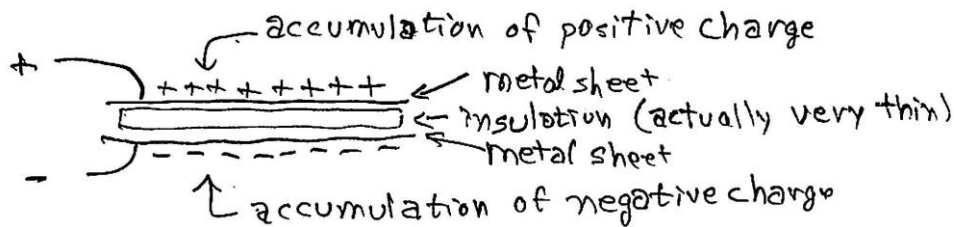 accumulation of positive charge
+
+++ + + + + +
metal sheet
insulation (actually very thin)
metal sheet
-
- - - - - - - -
accumulation of negative charge